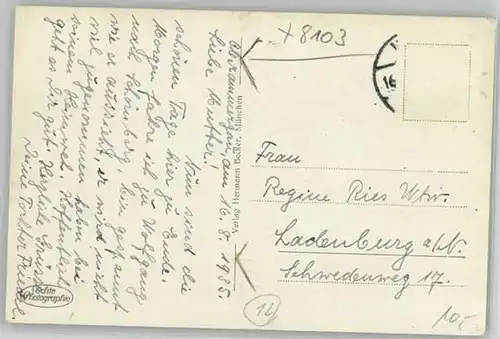 x 8103
16
Oberammergau, den 16.8.1935.
Liebe Mutter!
Nun sind die
schönen Tage hier zu Ende.
Morgen fahre ich zu Wolfgang
nach Schomberg, bin gespannt
wie er aussieht, er wird nicht
viel zugenommen haben bei
seinem Heimweh. Hoffentlich
geht es Dir gut. Herzliche Grüsse
Deine Tochter Friedel
Verlag Hermann Becker, München
Echte
Photographie
Frau
Regine Ries Wtw.
Ladenburg a/N.
Schwedenweg 17.
12
10,-